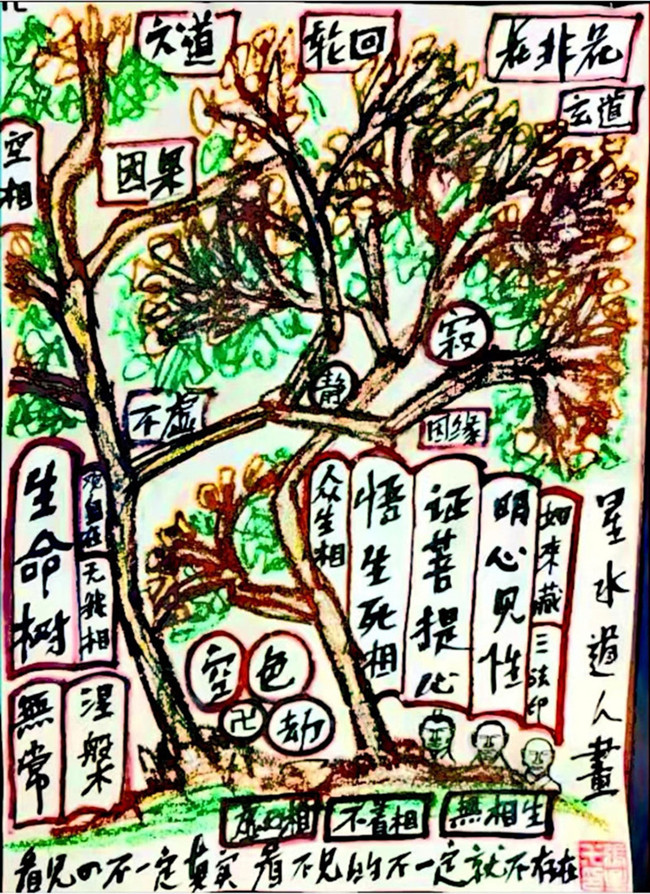 六道
轮回
花非花
玄道
空相
因果
寂
静
不虚
因缘
生命树
观自在
无我相
众生相
悟生死相
证菩提心
明心见性
如來藏
三法印
星水道人畫
空
色
卍
劫
無常
涅槃
不着相
無相生
看见的不一定真实 看不见的不一定就不存在